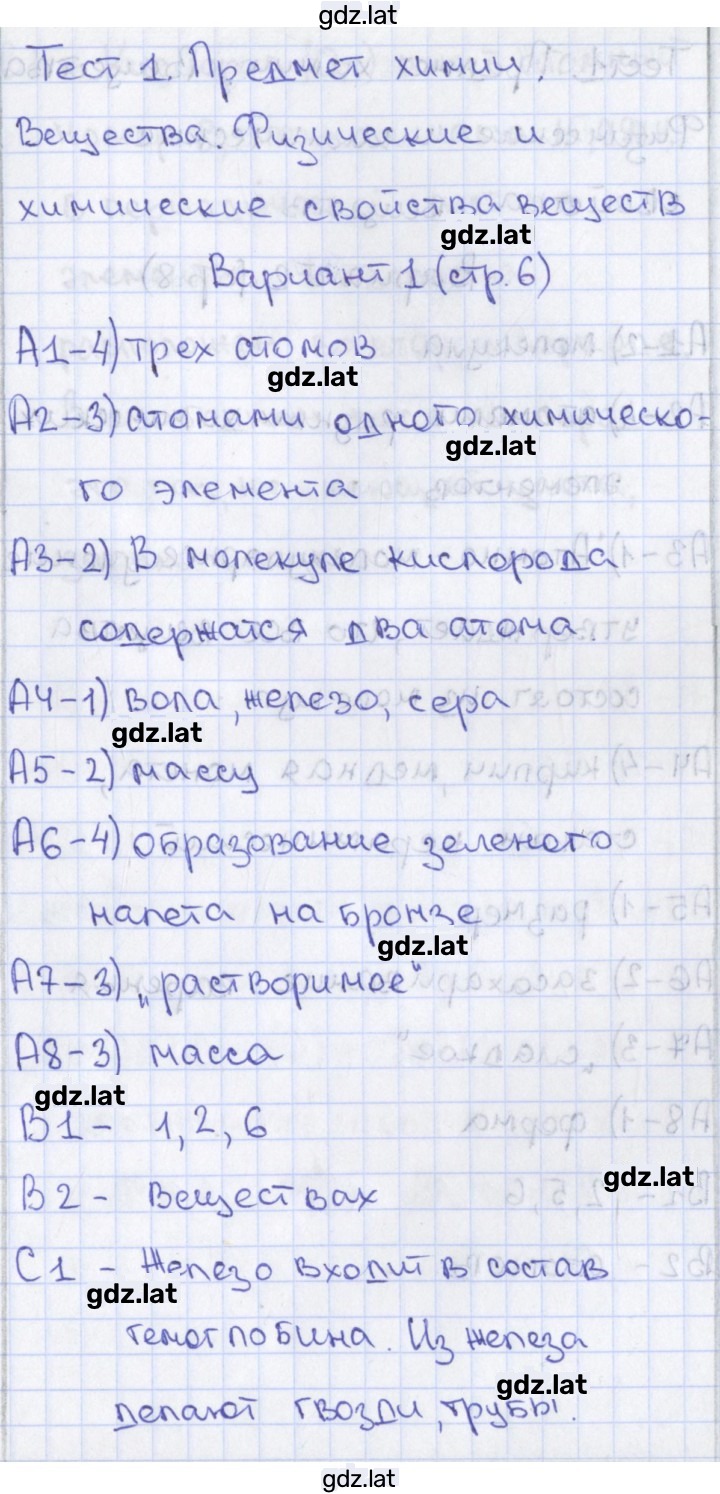 gdz.lat
Тест 1. Предмет химии.
Вещества. Физические и
химические свойства веществ
gdz.lat
Вариант 1 (стр. 6)
А1-4) трех атомов
gdz.lat
А2-3) атомами одного химическо-
gdz.lat
го элемента
А3-2) В молекуле кислорода
содержатся два атома.
А4-1) вода, железо, сера
gdz.lat
А5-2) массу
А6-4) образование зеленого
налета на бронзе
gdz.lat
А7-3) „растворимое"
А8-3) масса
gdz.lat
В1 - 1, 2, 6
gdz.lat
В2 - веществах
С1 - Железо входит в состав
gdz.lat
гемоглобина. Из железа
gdz.lat
делают гвозди, трубы.
gdz.lat